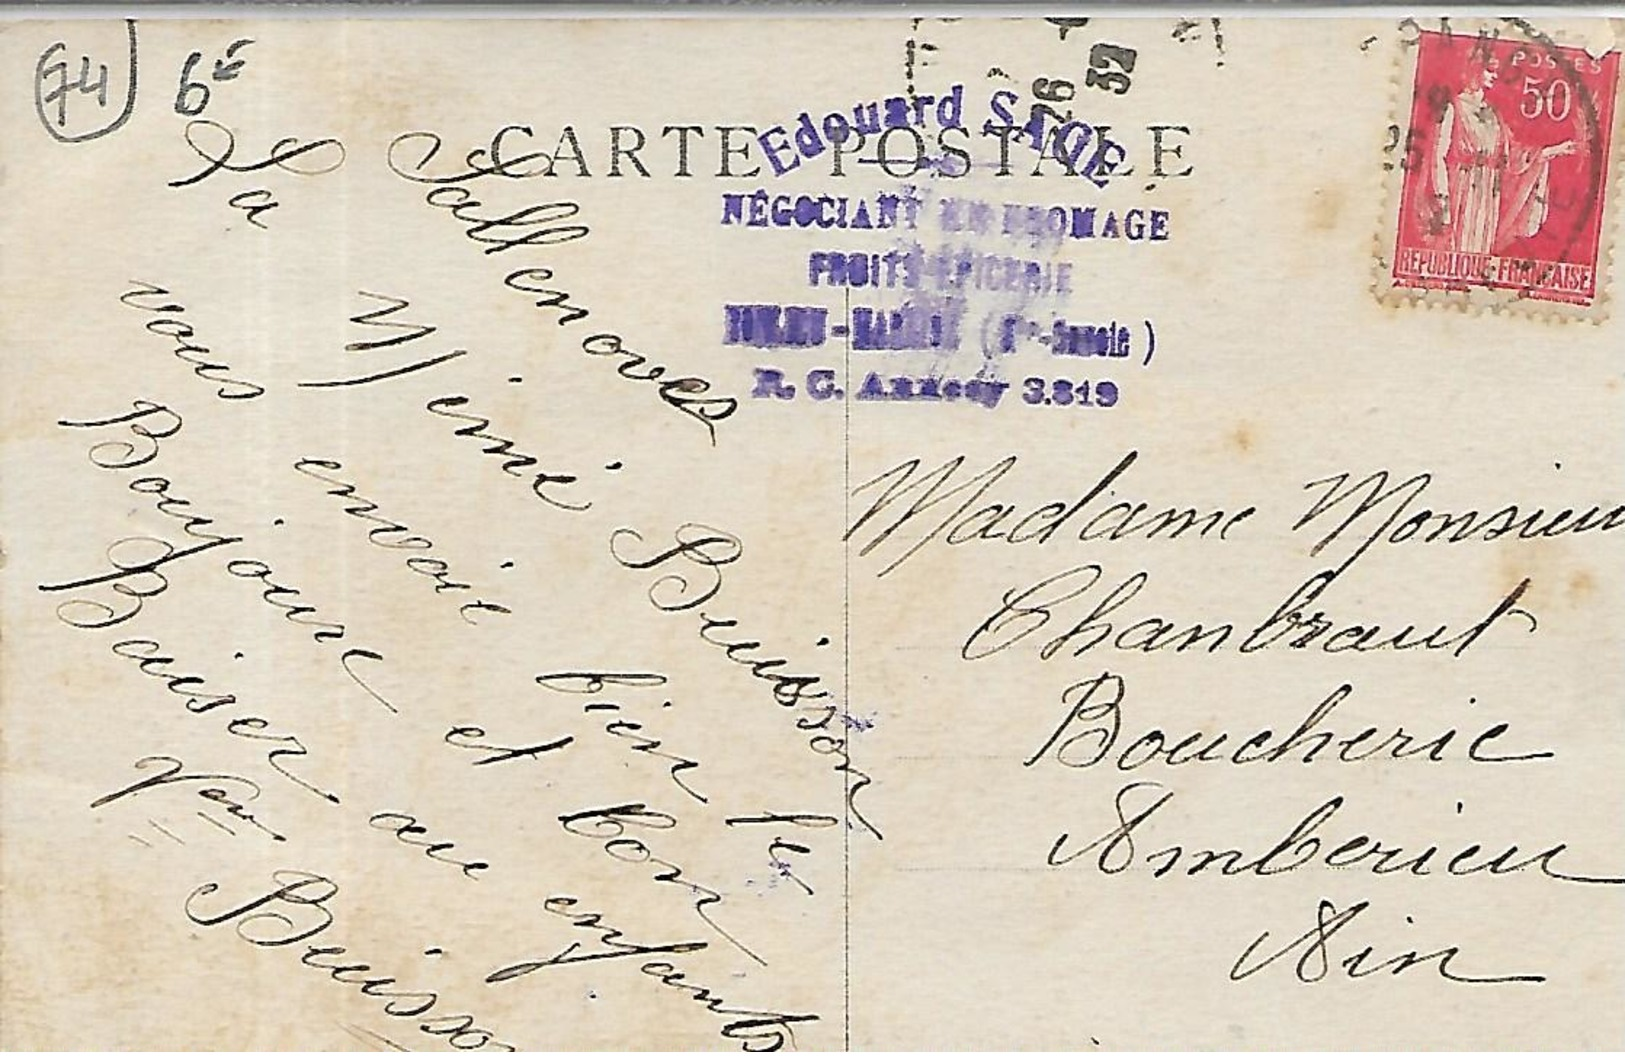 74 6€
CARTE POSTALE
Edouard SAGE
NÉGOCIANT EN FROMAGE
FRUITS-ÉPICERIE
(Hte-Savoie)
R. C. Annecy 3.819
26
32
POSTES
50
REPUBLIQUE-FRANÇAISE
La Sallenoves
Mme Buisson
vous envoie bien le
Boujoure et bon
Baiser au enfants
Vve Buisson
Madame Monsieur
Chanbraut
Boucherie
Amberieu
Ain